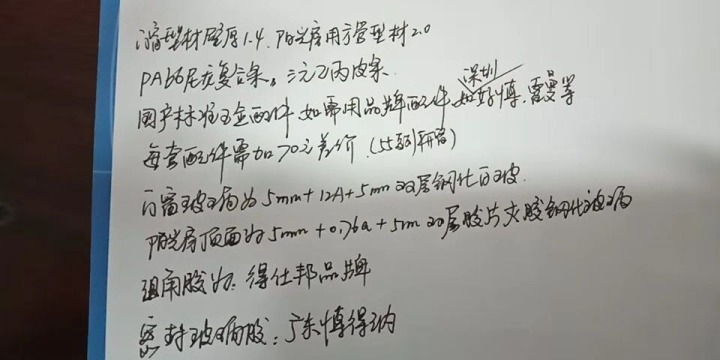 门窗型材壁厚1.4.阳光房用方管型材2.0
PA66尼龙复合条。三元乙丙皮条.
深圳
国产标准五金配件 如需用品牌配件 如好博.霍曼等
每套配件需加70元差价.(55系列 )
门窗玻璃为5mm+12A+5mm双层钢化白玻.
阳光房顶面为5mm+0.76a+5m双层胶片夹胶钢化玻璃
组角胶为:得仕邦品牌
密封玻璃胶:广东博得纳